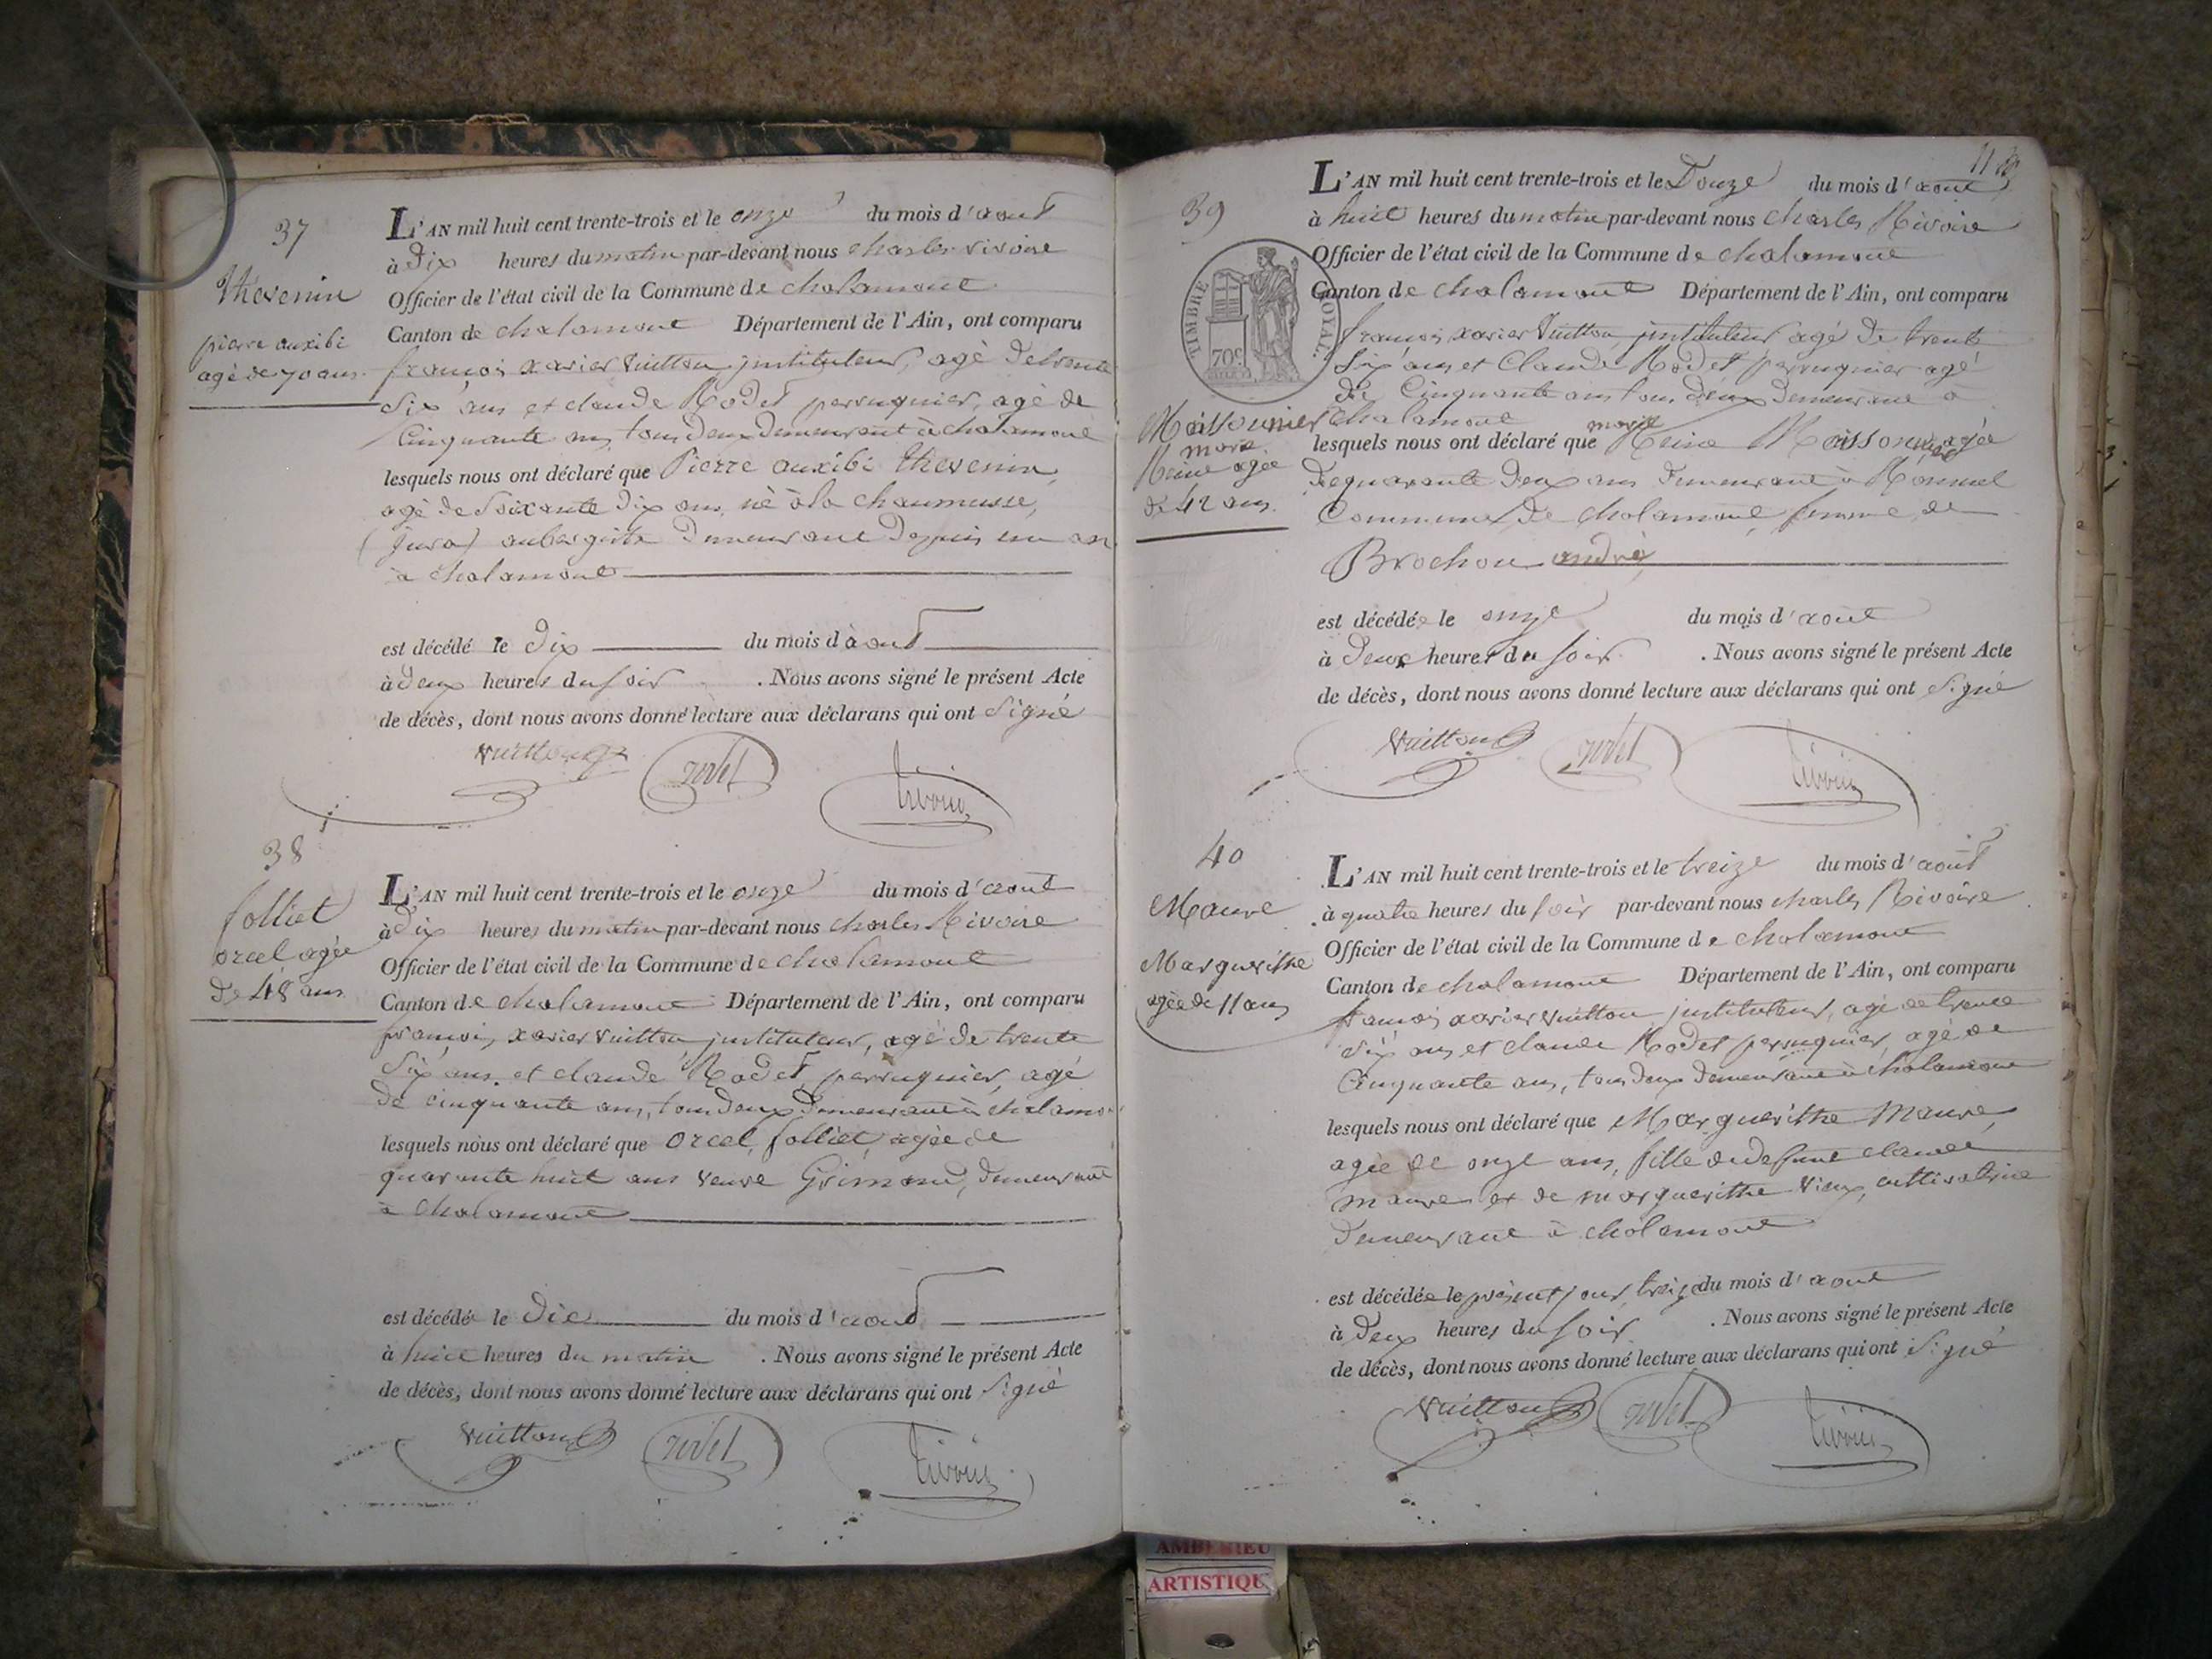 37
Thévenin
pierre auxibi
agé de 70 ans.
L'AN mil huit cent trente-trois et le onze du mois d'aout
à Dix heures du matin par-devant nous charles rivoire
Officier de l'état civil de la Commune de chalamont
Canton de chalamont Département de l'Ain, ont comparu
francois xavier Vuitton, jnstituteur, agé de trente
Six ans et claude Rodet perruquier, agé de
Cinquante ans tous deux Demeurant à chalamont
lesquels nous ont déclaré que Pierre auxibi thevenin,
agé de Soixante Dix ans, né à la chaumusse,
(jura) aubergiste Demeurant Depuis un an
à chalamont
est décédé le Dix du mois d'aout
à deux heures du soir . Nous avons signé le présent Acte
de décès, dont nous avons donné lecture aux déclarans qui ont Signé
Vuitton rodet rivoire
38
folliet
orcel agée
De 48 ans
L'AN mil huit cent trente-trois et le onze du mois d'aout
à Dix heures du matin par-devant nous charles Rivoire
Officier de l'état civil de la Commune de chalamont
Canton de chalamont Département de l'Ain, ont comparu
francois, xavier vuitton jnstituteur, agé de trente
Six ans. et claude Rodet, perruquier, agé
de cinquante ans, tous deux Demeurant à chalamo
lesquels nous ont déclaré que orcel, folliet, agée de
quarante huit ans veuve Grimand, Demeurant
à chalamont
est décédée le Dix du mois d'aout
à huit heures du matin . Nous avons signé le présent Acte
de décès, dont nous avons donné lecture aux déclarans qui ont Signé
Vuitton rodet rivoire
11
39
TIMBRE ROYAL.
70c
Moissonnier
marie
Reine agée
de 42 ans.
L'AN mil huit cent trente-trois et le Douze du mois d'aout
à huit heures du matin par-devant nous charles Rivoire
Officier de l'état civil de la Commune de chalamont
Canton de chalamont Département de l'Ain, ont comparu
francois xavier Vuitton, jnstituteur agé de trente
Six ans et Claude Rodet perruquier agé
de Cinquante ans tous deux Demeurant à
Chalamont
marie
lesquels nous ont déclaré que Reine Moissonnier agée
de quarante Deux ans Demeurant à
Commune de chalamont, femme de
Brochon andré,
est décédée le onze du mois d'aout
à Deux heures du soir . Nous avons signé le présent Acte
de décès, dont nous avons donné lecture aux déclarans qui ont Signé
Vuitton rodet rivoire
40
Maure
Marguerithe
agée de 11 ans
L'AN mil huit cent trente-trois et le treize du mois d'août
à quatre heures du soir par-devant nous charles Rivoire
Officier de l'état civil de la Commune de chalamont
Canton de chalamont Département de l'Ain, ont comparu
francois xavier vuitton jnstituteur, agé de trente
Six ans et claude Rodet perruquier, agé de
Cinquante ans, tous deux demeurant à chalamont
lesquels nous ont déclaré que Marguerithe Maure,
agée de onze ans, fille de defunt claude
maure et de marguerithe Vieux, cultivatrice
Demeurant à chalamont
est décédée le présent jour, treize du mois d'aout
à Deux heures du soir . Nous avons signé le présent Acte
de décès, dont nous avons donné lecture aux déclarans qui ont Signé
Vuitton rodet rivoire
AMBERIEU
ARTISTIQU